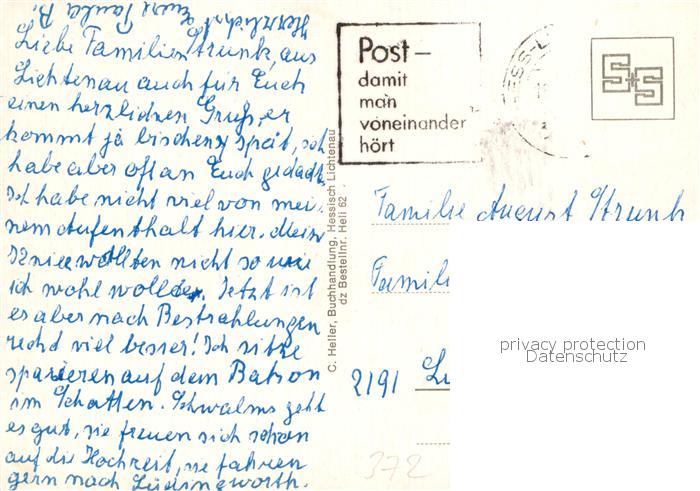 Herzlichst Eure Paula B.
Liebe Familien Strunk, aus
Lichtenau auch für Euch
einen herzlichen Gruß, er
kommt ja bischeng spät, ich
habe aber oft an Euch gedacht.
Ich habe nicht viel von mei-
nem Aufenthalt hier. Meine
Knie wollten nicht so wie
ich wohl wollte. Jetzt ist
es aber nach Bestrahlungen
recht viel besser! Ich sitze
spazieren auf dem Balkon
im Schatten. Schwalms geht
es gut, sie freuen sich schon
auf die Hochzeit, sie fahren
gern nach Lüdingworth.
C. Heller, Buchhandlung, Hessisch Lichtenau
dz Bestellnr. Heli 62
Post –
damit
man
voneinander
hört
HESS-L
S+S
Familie August Strunk
Famili
2191 Lu
372
privacy protection
Datenschutz